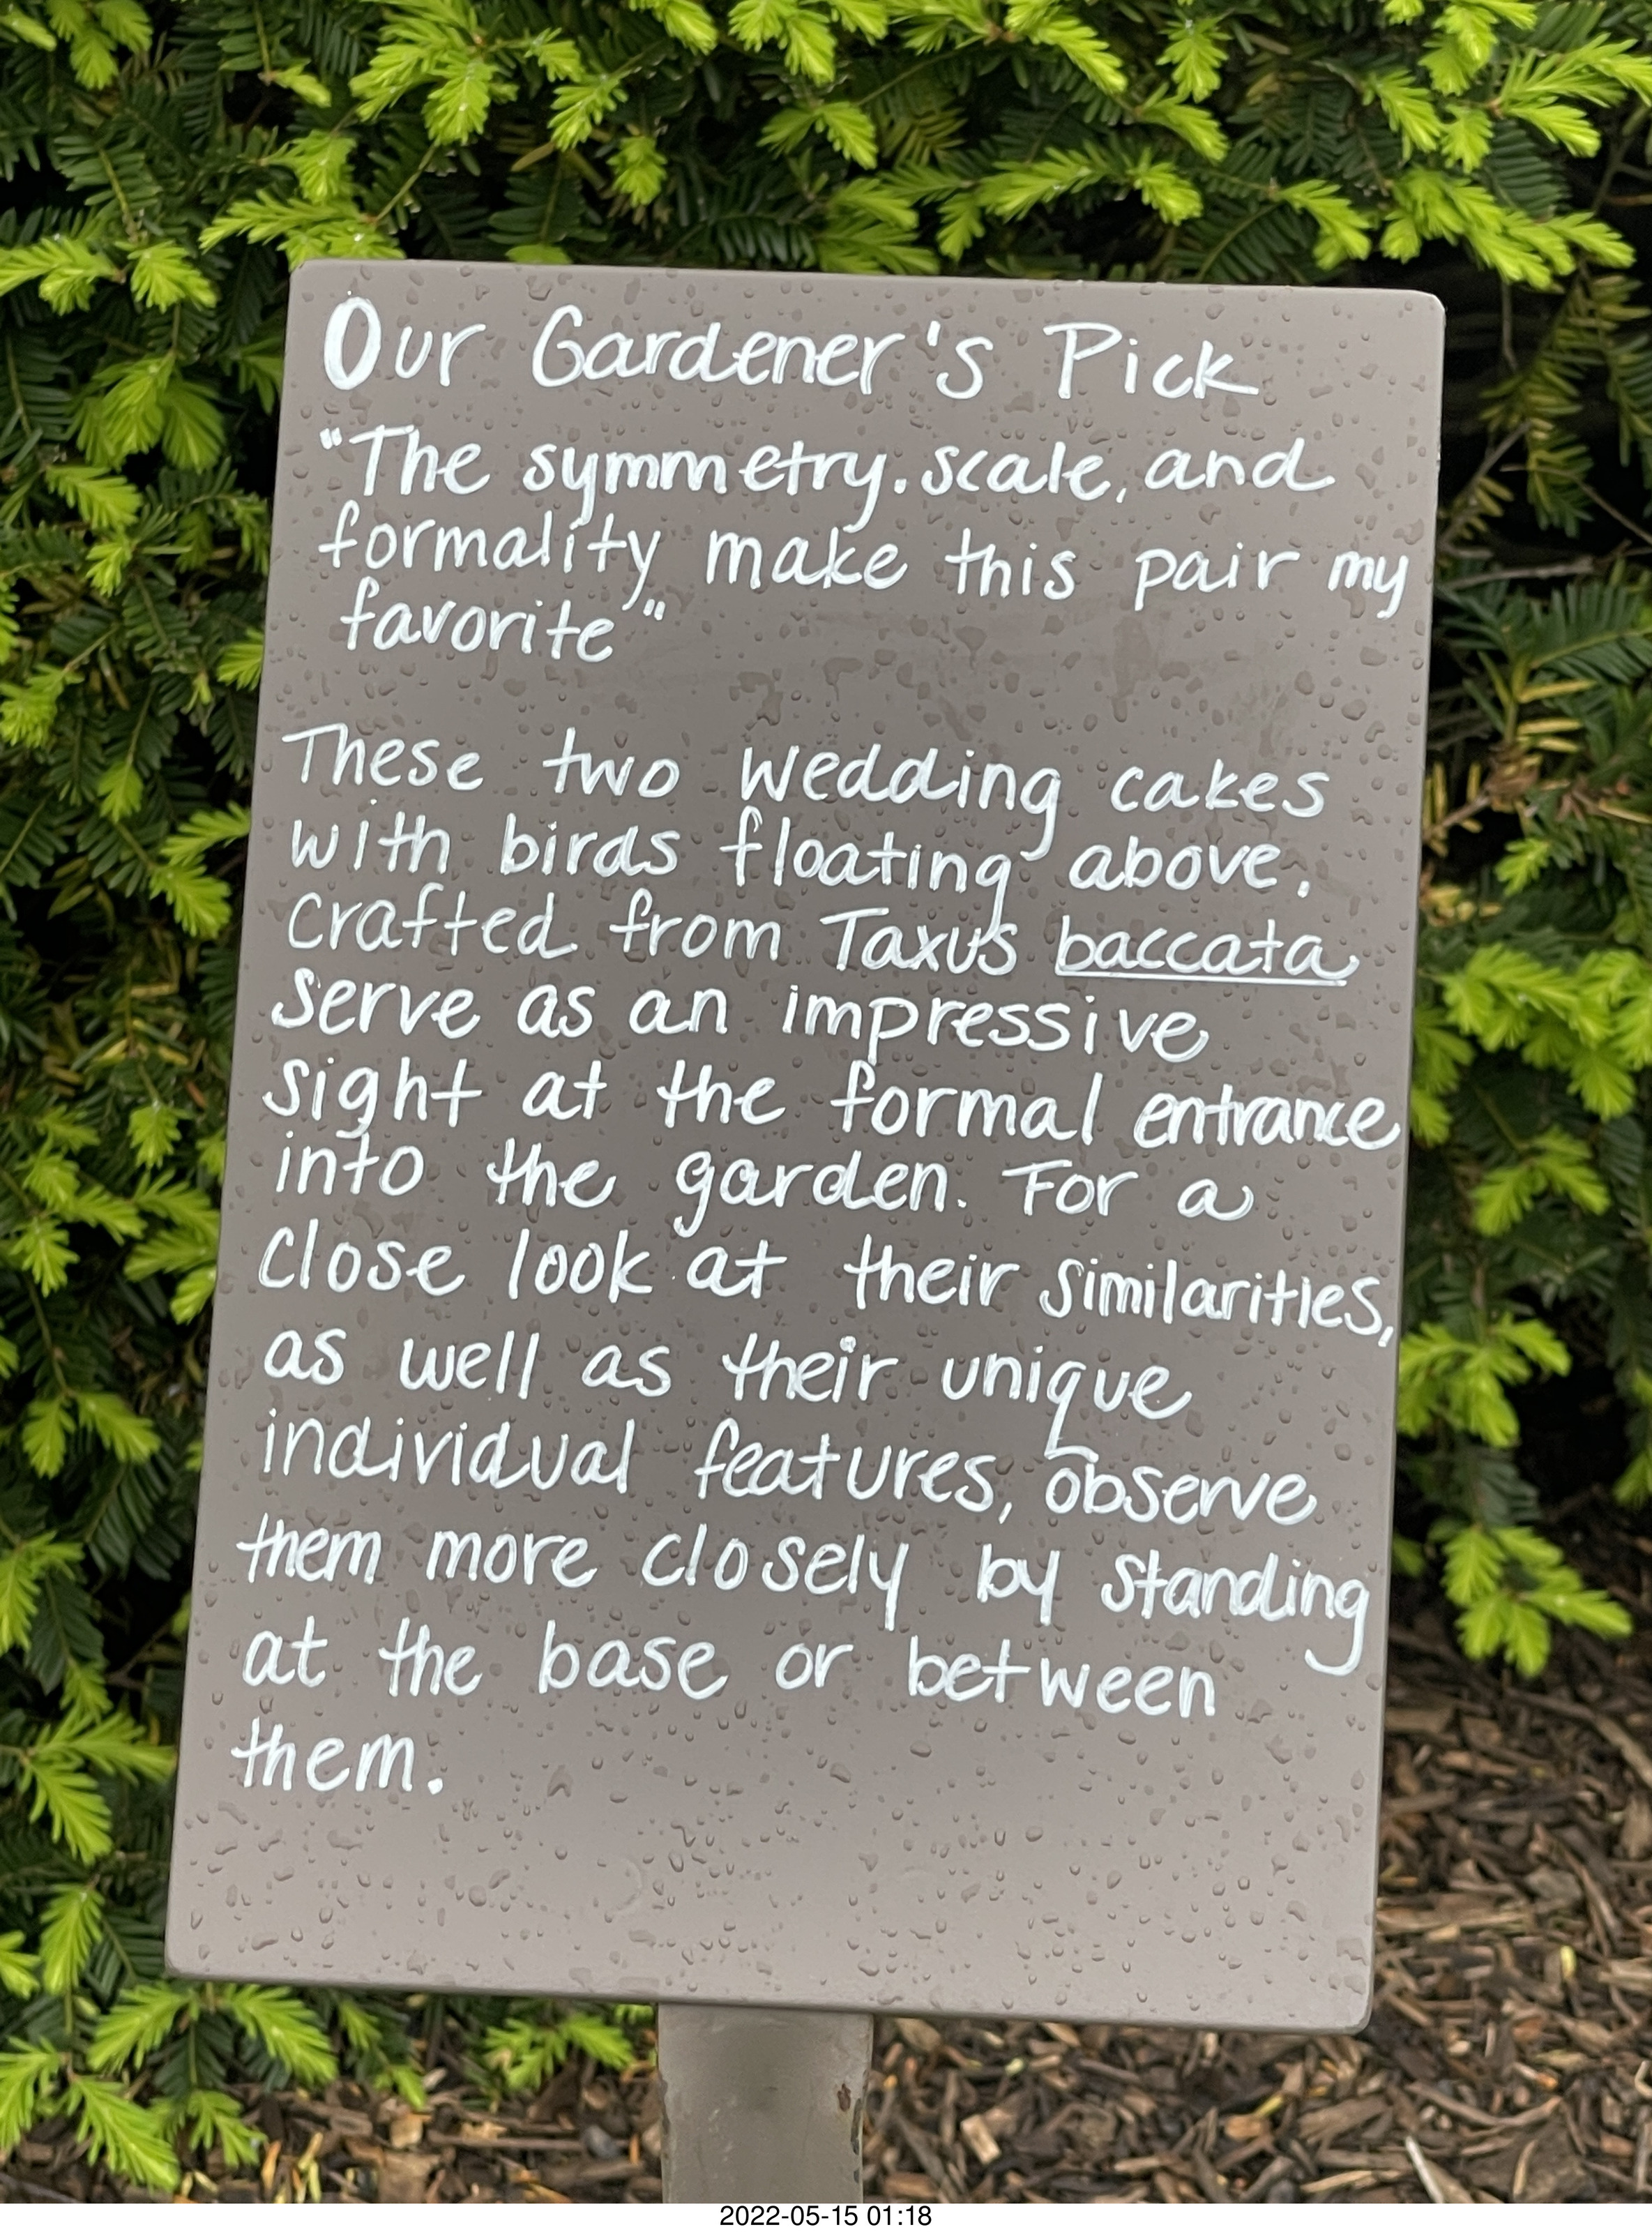 Our Gardener's Pick
"The symmetry. scale, and
formality make this pair my
favorite"
These two wedding cakes
with birds floating above,
crafted from Taxus baccata
serve as an impressive
sight at the formal entrance
into the garden. For a
close look at their similarities,
as well as their unique
individual features, observe
them more closely by standing
at the base or between
them.
2022-05-15 01:18